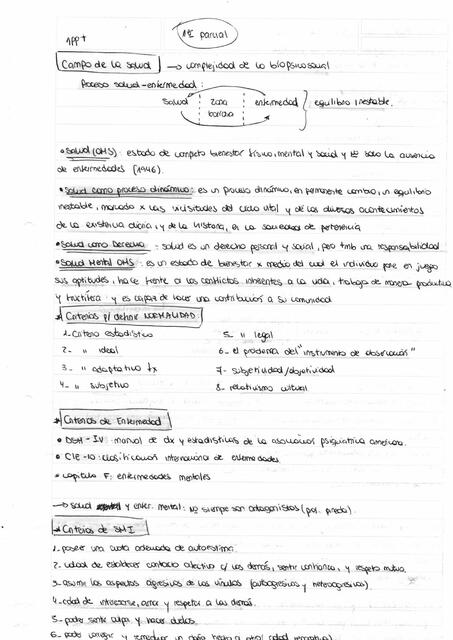 1PP+
1er parcial
Campo de la salud → complejidad de lo biopsicosocial
Proceso salud-enfermedad:
salud zona borrosa enfermedad } equilibrio inestable.
• Salud (OMS): estado de completo bienestar físico, mental y social y no solo la ausencia
de enfermedades (1946).
• Salud como proceso dinámico: es un proceso dinámico, en permanente cambio, un equilibrio
inestable, marcado x las vicisitudes del ciclo vital y de los diversos acontecimientos
de la existencia diaria, y de la historia, en la sociedad de pertenencia
• Salud como Derecho: salud es un derecho personal y social, pero tmb una responsabilidad
• Salud Mental OMS: es un estado de bienestar x medio del cual el individuo pone en juego
sus aptitudes, hace frente a los conflictos inherentes a la vida, trabaja de manera productiva
y fructífera y es capaz de hacer una contribución a su comunidad
* Criterios p/ definir NORMALIDAD:
1- Criterio estadístico 5- " legal
2- " ideal 6- el problema del "instrumento de observación"
3- " adaptativo 7- subjetividad/objetividad
4- " subjetivo 8- relativismo cultural
* Criterios de Enfermedad
• DSM-IV: manual de dx y estadísticas de la asociación psiquiatría americana.
• CIE-10: clasificación internacional de enfermedades.
• capítulo F: enfermedades mentales
→ salud y enfer. mental: No siempre son antagonistas
* Criterios de SMI
1- poseer una cuota adecuada de autoestima.
2- de establecer contacto afectivo c/ los demás, sentir confianza, y respeto mutuo.
3- asumir los aspectos agresivos de los vínculos (autoagresivos y heteroagresivos)
4- de interesarse, amar y respetar a los demás.
5- poder sentir culpa y hacer duelos.
6- poder corregir y